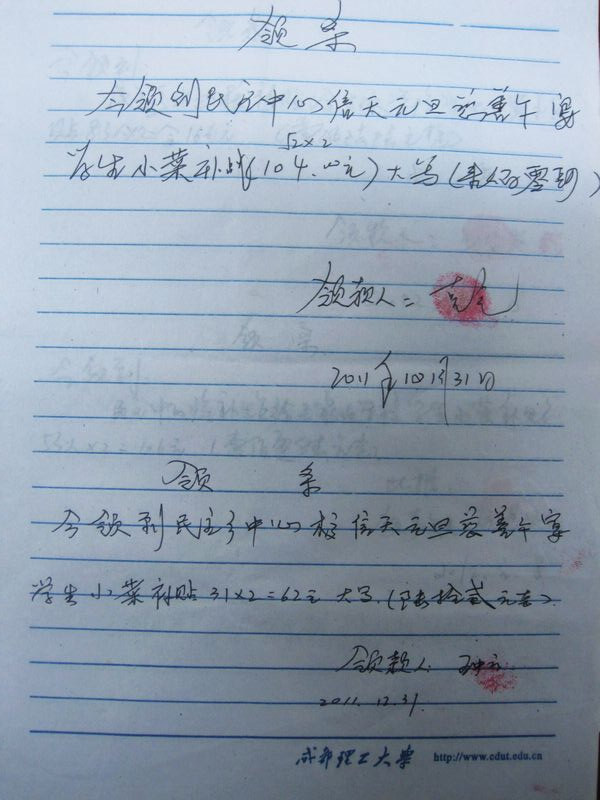 领条
今领到民主中心信天元旦慈善午宴
52×2
学生小菜补贴(104.00元)大写(壹佰零肆)
领款人:
2011年10月31日
领 条
今领到民主乡中心校信天元旦慈善午宴
学生小菜补贴31×2=62元 大写(陆拾贰元)
领款人
2011.12.31.
成都理工大学 http://www.cdut.edu.cn